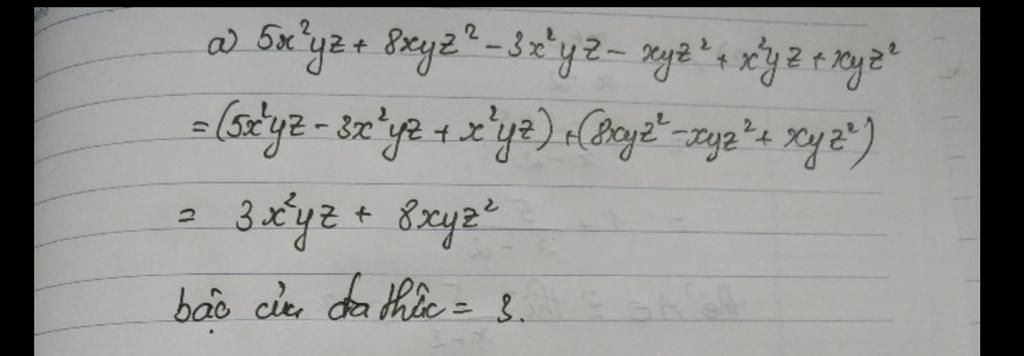 a) 5x²yz + 8xyz² - 3x²yz - xyz² + x²yz + xyz²
= (5x²yz - 3x²yz + x²yz) + (8xyz² - xyz² + xyz²)
= 3x²yz + 8xyz²
bậc của đa thức = 3.